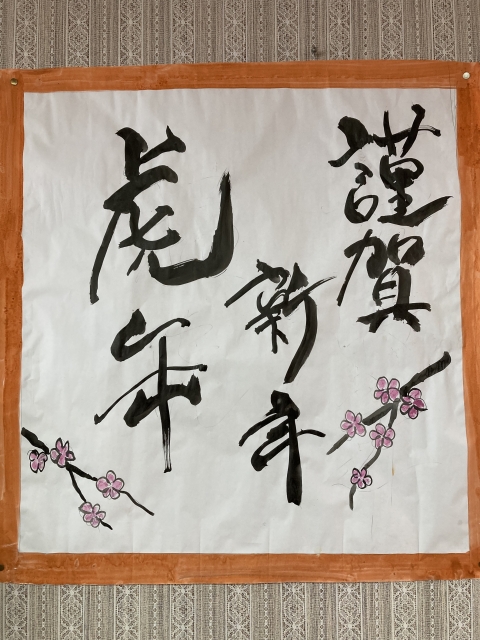 謹賀
新年
虎年